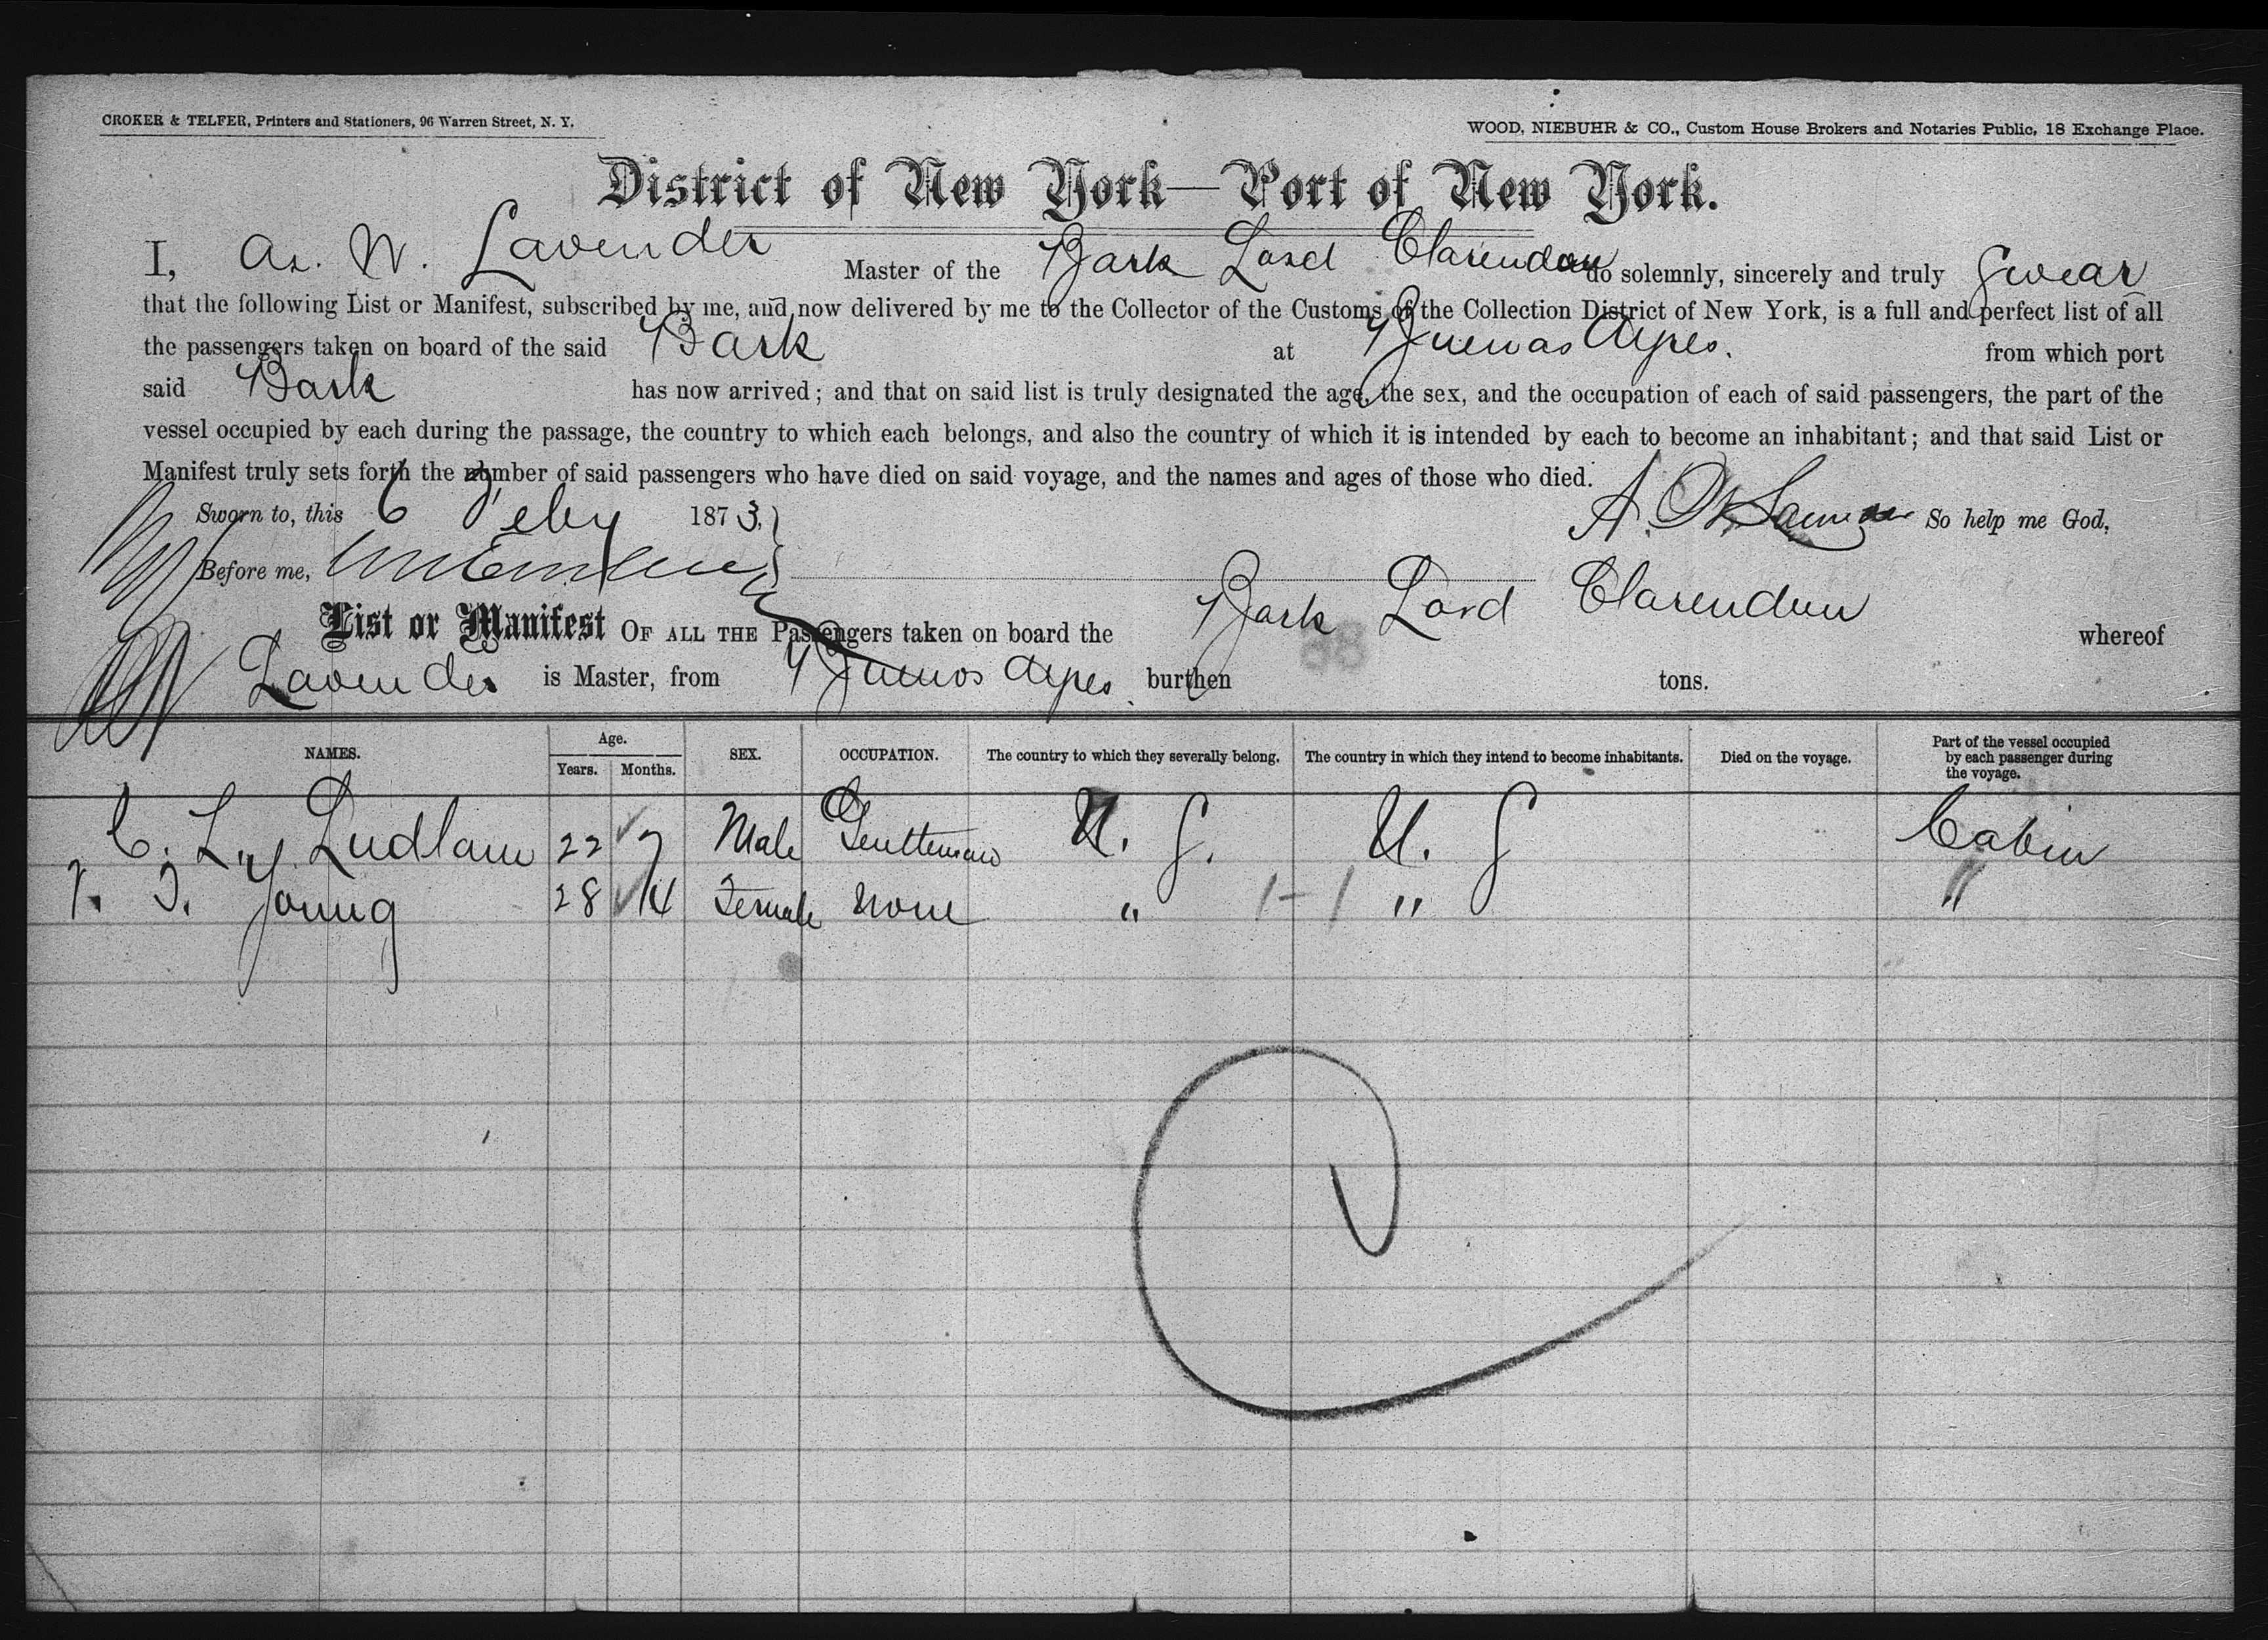 CROKER & TELFER, Printers and Stationers, 96 Warren Street, N. Y.
WOOD, NIEBUHR & CO., Custom House Brokers and Notaries Public, 18 Exchange Place.
District of New York—Port of New York.
I, W. Lavender Master of the Bark Lord Clarendon do solemnly, sincerely and truly Swear
that the following List or Manifest, subscribed by me, and now delivered by me to the Collector of the Customs of the Collection District of New York, is a full and perfect list of all
the passengers taken on board of the said Bark at Buenos Ayres. from which port
said Bark has now arrived; and that on said list is truly designated the age, the sex, and the occupation of each of said passengers, the part of the
vessel occupied by each during the passage, the country to which each belongs, and also the country of which it is intended by each to become an inhabitant; and that said List or
Manifest truly sets forth the number of said passengers who have died on said voyage, and the names and ages of those who died.
Sworn to, this 6 Feby 1873, So help me God,
Before me,
List or Manifest OF ALL THE Passengers taken on board the Bark Lord Clarendon whereof
Lavender is Master, from Buenos Ayres. burthen tons.
NAMES. Age. Years. Months. SEX. OCCUPATION. The country to which they severally belong. The country in which they intend to become inhabitants. Died on the voyage. Part of the vessel occupied by each passenger during the voyage.
C. L. Ludlam 22 7 Male Gentleman U. S. U. S Cabin
Young 28 4 Female None " " "